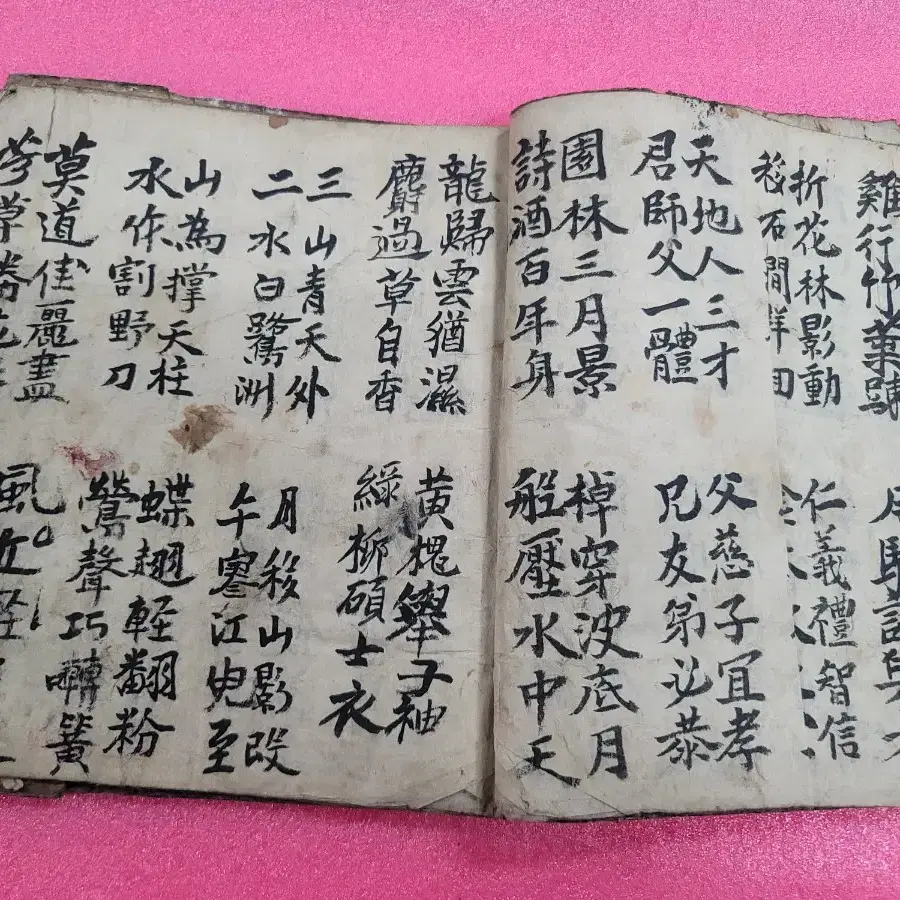 雞行竹葉
折花林影動
移石間
天地人三才
君師父一體
園林三月景
詩酒百年身
仁義禮智信
父慈子宜孝
兄友弟必恭
棹穿波底月
船壓水中天
龍歸雲猶濕
麝過草自香
三山青天外
二水白鷺洲
山為撑天柱
水作割野刀
莫道佳麗盡
草勝花
黄槐擧子袖
綠柳碩士衣
月移山影改
午寒江至
蝶翅輕翻粉
鶯聲巧囀簧
風